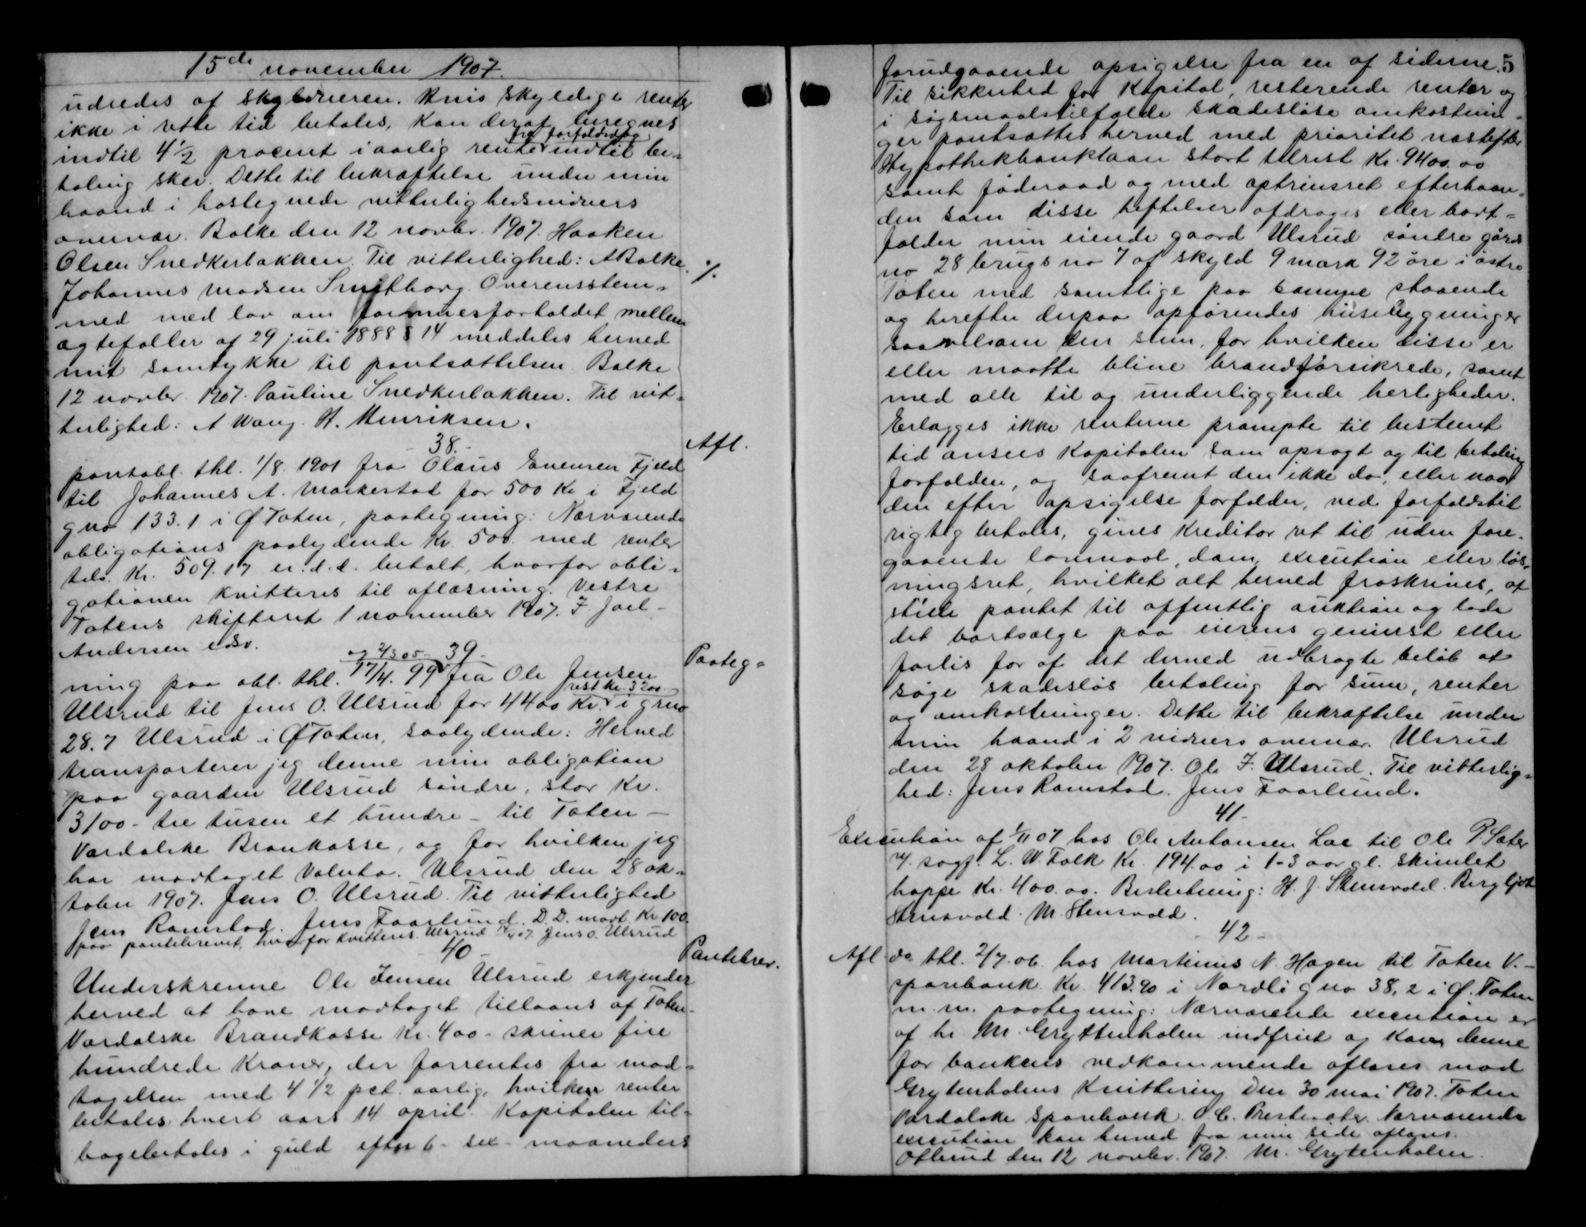 15de november 1907.
udredes af skyldneren. Hvis skyldige renter
ikke i rette tid betales, kan deraf beregnes
fra forfaldsdag
indtil 4 1/2 procent i aarlig rente indtil be-
taling sker. Dette til bekræftelse under min
haand i hostegnede vitterlighedsvidners
overvær. Balke den 12 novbr. 1907. Haaken
Olsen Snedkerbakken. Til vitterlighed: A Balke.
Johannes Madsen Smedborg. Overensstem-
med med lov om formuesforholdet mellem
ægtefæller af 29 juli 1888 § 14 meddeles herved
mit samtykke til pantsættelsen. Balke
12 novbr. 1907. Pauline Snedkerbakken. Til vit-
terlighed: A Wang. H. Henriksen.
38.- Afl.
pantobl. thl. 1/8 1901 fra Olaus Evensen Fjeld
til Johannes A. Markestad for 500 Kr i Fjeld
gno 133.1 i ØToten, paategning: Nærværende
obligations paalydende Kr. 500 med renter
tils. Kr. 509.17 er d.d. betalt, hvorfor obli-
gationen kvitteres til aflæsning. Vestre
Totens skifteret 1 november 1907. F Joel-
Andersen edsv.
og 4/3 05 - 39 - Paateg-
ning paa obl. thl. 17/4. 99 fra Ole Jensen
rest kr. 3200
Ulsrud til Jens O. Ulsrud for 4400 Kr. i gno
28.7 Ulsrud i ØToten, saalydende: Herved
transporterer jeg denne min obligation
paa gaarden Ulsrud søndre, stor Kr.
3100 - tre tusen et hundre - til Toten -
Vardalske Brankasse, og for hvilken jeg
har modtaget Valuta. Ulsrud den 28 ok-
tober 1907. Jens O. Ulsrud. Til vitterlighed
Jens Ramstad. Jens Faarlund. D.D. modt Kr 100.
paa pantebrevet, hvorfor kvitteres. Ulsrud 07 Jens O. Ulsrud
40 Pantebrev.
Underskrevne Ole Jensen Ulsrud erkjender
herved at have modtaget tillaans af Toten-
Vardalske Brandkasse Kr. 400 - skriver fire
hundrede Kroner, der forrentes fra mod-
tagelsen med 4 1/2 pct. aarlig, hvilken renter
betales hvert aars 14 april. Kapitalen til-
bagebetales i guld efter 6 - sex - maaneders
5
forudgaaende opsigelse fra en af siderne.
Til sikkerhed for Kapital, resterende renter og
i søgsmaalstilfælde skadesløse omkostnin-
ger pantsættes herved med prioritet næstefter
Hypothekbanklaan stort tilrest Kr. 9400.00
samt føderaad og med optrinsret efterhaan-
den som disse heftelser afdrages eller bort-
falder min eiende gaard Ulsrud søndre gårds
no 28 brugs no 7 af skyld 9 mark 92 øre i østre
Toten med samtlige paa samme staaende
og herefter derpaa opførendes husebygninger
saavelsom den sum, for hvilken disse er
eller maatte blive brandforsikrede, samt
med alle til og underliggende herligheder.
Erlægges ikke renterne prompte til bestemt
tid ansees Kapitalen som opsagt og til betaling
forfalden, og saafremt den ikke da, eller naar
den efter opsigelse forfalder, ved forfaldstid
rigtig betales, gives Kreditor ret til uden fore-
gaaende lovmaal, dom, execution eller løs-
ningsret, hvilket alt herved fraskrives, at
stille pantet til offentlig auktion og lade
det bortsælge paa eierens gevinst eller
forlis for af det derved udbragte beløb at
søge skadesløs betaling for sum, renter
og omkostninger. Dette til bekræftelse under
min haand i 2 vidners overvær. Ulsrud
den 28 oktober 1907. Ole J. Ulsrud. Til vitterlig-
hed: Jens Ramstad. Jens Faarlund.
41-
Execution af 07 hos Ole Antonsen Lae til Ole P Sater
sagf. L. W. Falk Kr. 194.00 i 1-3 aar gl. skimlet
hoppe Kr. 400.00. Beslutning: H. J. Stensvold. Bergljot
Stensvold. M. Stensvold.
- 42 -
Afl. do thl. 2/7.06. hos Martinus N. Hagen til Toten V.-
sparebank Kr. 413.90 i Nordli gno 38,2 i Ø. Toten
m. m. paategning: Nærværende execution er
af hr. M. Gryttenholen indfriet og kan denne
for bankens vedkommende aflæses mod
Grytenholens Kvittering. Den 30 mai 1907. Toten
Vardalske Sparebank. O. C. Nærværende
execution kan herved fra min side aflæses.
den 12 novbr. 1907. M. Grytenholen.